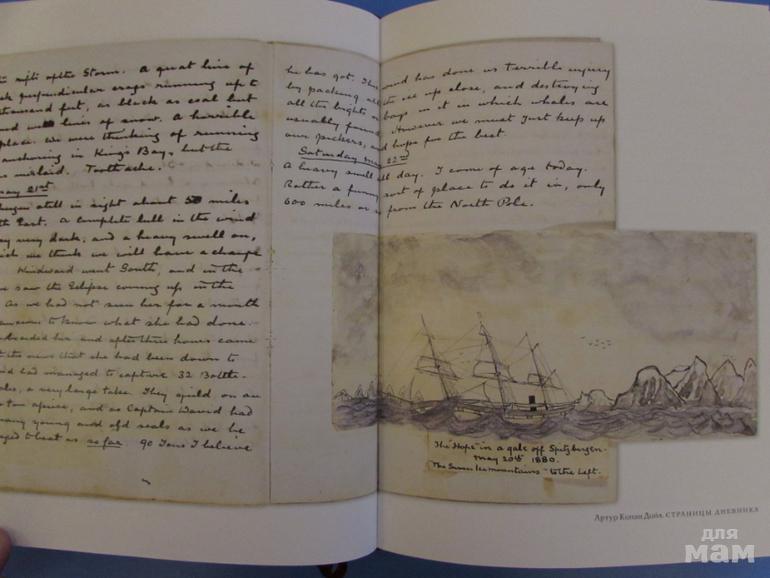 the midst of the Storm. A great line of
perpendicular crags running up to
thousand feet, as black as coal but
lines of snow. A horrible
place. We were thinking of running
anchoring in King's Bay, but the
mislaid. Toothache.
May 21st
still in sight about 50 miles
East. A complete lull in the wind
very dark, and a heavy swell on,
we think we will have a change
Windward went South, and in the
saw the Eclipse coming up in the
As we had not seen her for a month
to know what she had done.
boarded her and after three hours came
the news that she had been down to
and had managed to capture 32 Bottle-
a very large take. They yield on an
ton apiece, and as Captain David had
many young and old seals as we he
to beat us so far. 90 Tons I believe
he has got. This wind has done us terrible injury
by packing all the ice up close, and destroying
all the bights or bays in it in which whales are
usually found. However we must just keep up
our peckers, and hope for the best.
Saturday May 22nd
A heavy swell all day. I come of age today.
Rather a funny sort of place to do it in, only
600 miles or so from the North Pole.
The "Hope" in a gale off Spitzbergen.
May 20th 1880.
The Seven Icemountains to the Left.
Артур Конан Дойл. СТРАНИЦЫ ДНЕВНИКА
для
мам